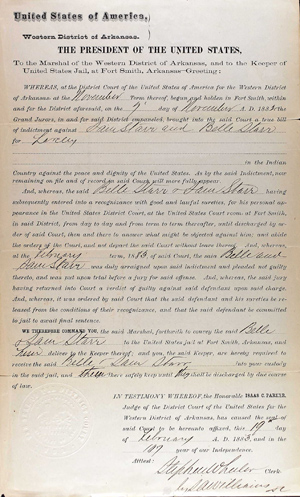 United States of America,
Western District of Arkansas.
THE PRESIDENT OF THE UNITED STATES,
To the Marshal of the Western District of Arkansas, and to the Keeper of
United States Jail, at Fort Smith, Arkansas—Greeting:
WHEREAS, at the District Court of the United States of America for the Western
District of Arkansas at the November Term thereof, begun and holden in Fort Smith, within
and for the District aforesaid, on the 9" day of November A. D. 1882 the
Grand Jurors, in and for said District empaneled, brought into the said Court a true bill
of indictment against Sam Starr and Belle Starr
for Larceny
in the Indian
Country against the peace and dignity of the United States. As by the said Indictment, now
remaining on file and of record in said Court will more fully appear.
And, whereas, the said Belle Starr & Sam Starr having
subsequently entered into a recognizance with good and lawful sureties, for his personal ap-
pearance in the United States District Court, at the United States Court room at Fort Smith,
in said District, from day to day and from term to term thereafter, until discharged by or-
der of said Court, then and there to answer what might be objected against him; and abide
the orders of the Court, and not depart the said Court without leave thereof. And, whereas,
at the February term, 1883, of said Court, the said Belle and
Sam Starr was duly arraigned upon said indictment and pleaded not guilty
thereto, and was put upon trial before a jury for said offense. And, whereas, the said jury
having returned into Court a verdict of guilty against said defendant upon said charge.
And, whereas, it was ordered by said Court that the said defendant and his sureties be re-
leased from the conditions of their recognizance, and that the said defendant be committed
to jail to await final sentence.
WE THEREFORE COMMAND YOU, the said Marshal, forthwith to convey the said Belle
& Sam Starr to the United States Jail at Fort Smith, and
them deliver to the Keeper thereof; and you, the said Keeper, are hereby required to
receive the said Belle & Sam Starr into your custody
in the said jail, and them there safely keep until they shall be discharged by due course
of law.
IN TESTIMONY WHEREOF, the Honorable ISAAC C. PARKER,
Judge of the District Court of the United States for the
Western District of Arkansas, has caused the seal of
said Court to be hereunto affixed, this 19"
day of
February A. D. 1883, and in the
107 year of our Independence.
Attest:
Stephen Wheeler Clerk.